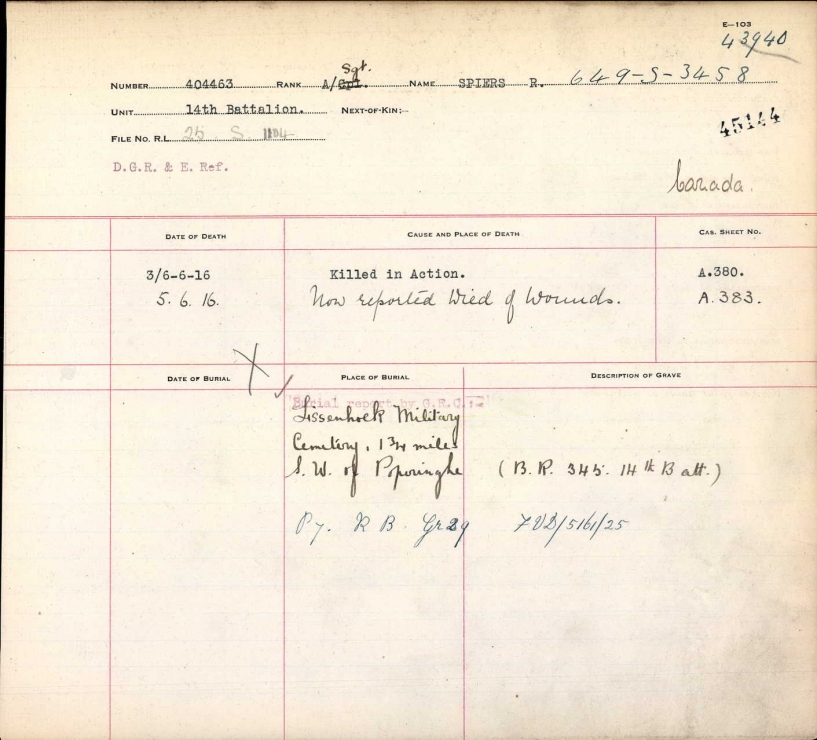 E—103
43940
Sgt.
NUMBER 404463 RANK A/Cpl. NAME SPIERS R. 649-S-3458
UNIT 14th Battalion. NEXT-OF-KIN:—
45144
FILE No. R.L. 25 S
D.G.R. & E. Ref.
Canada.
DATE OF DEATH CAUSE AND PLACE OF DEATH CAS. SHEET NO.
3/6-6-16 Killed in Action. A.380.
5.6.16. Now reported Died of Wounds. A.383.
DATE OF BURIAL PLACE OF BURIAL DESCRIPTION OF GRAVE
"Burial report by G.R.C.:—"
Lissenhoek Military
Cemetery, 1¾ miles
S.W. of Poperinghe (B.R. 345. 14th Batt.)
P7. R B. Gr29 7VD/5161/25